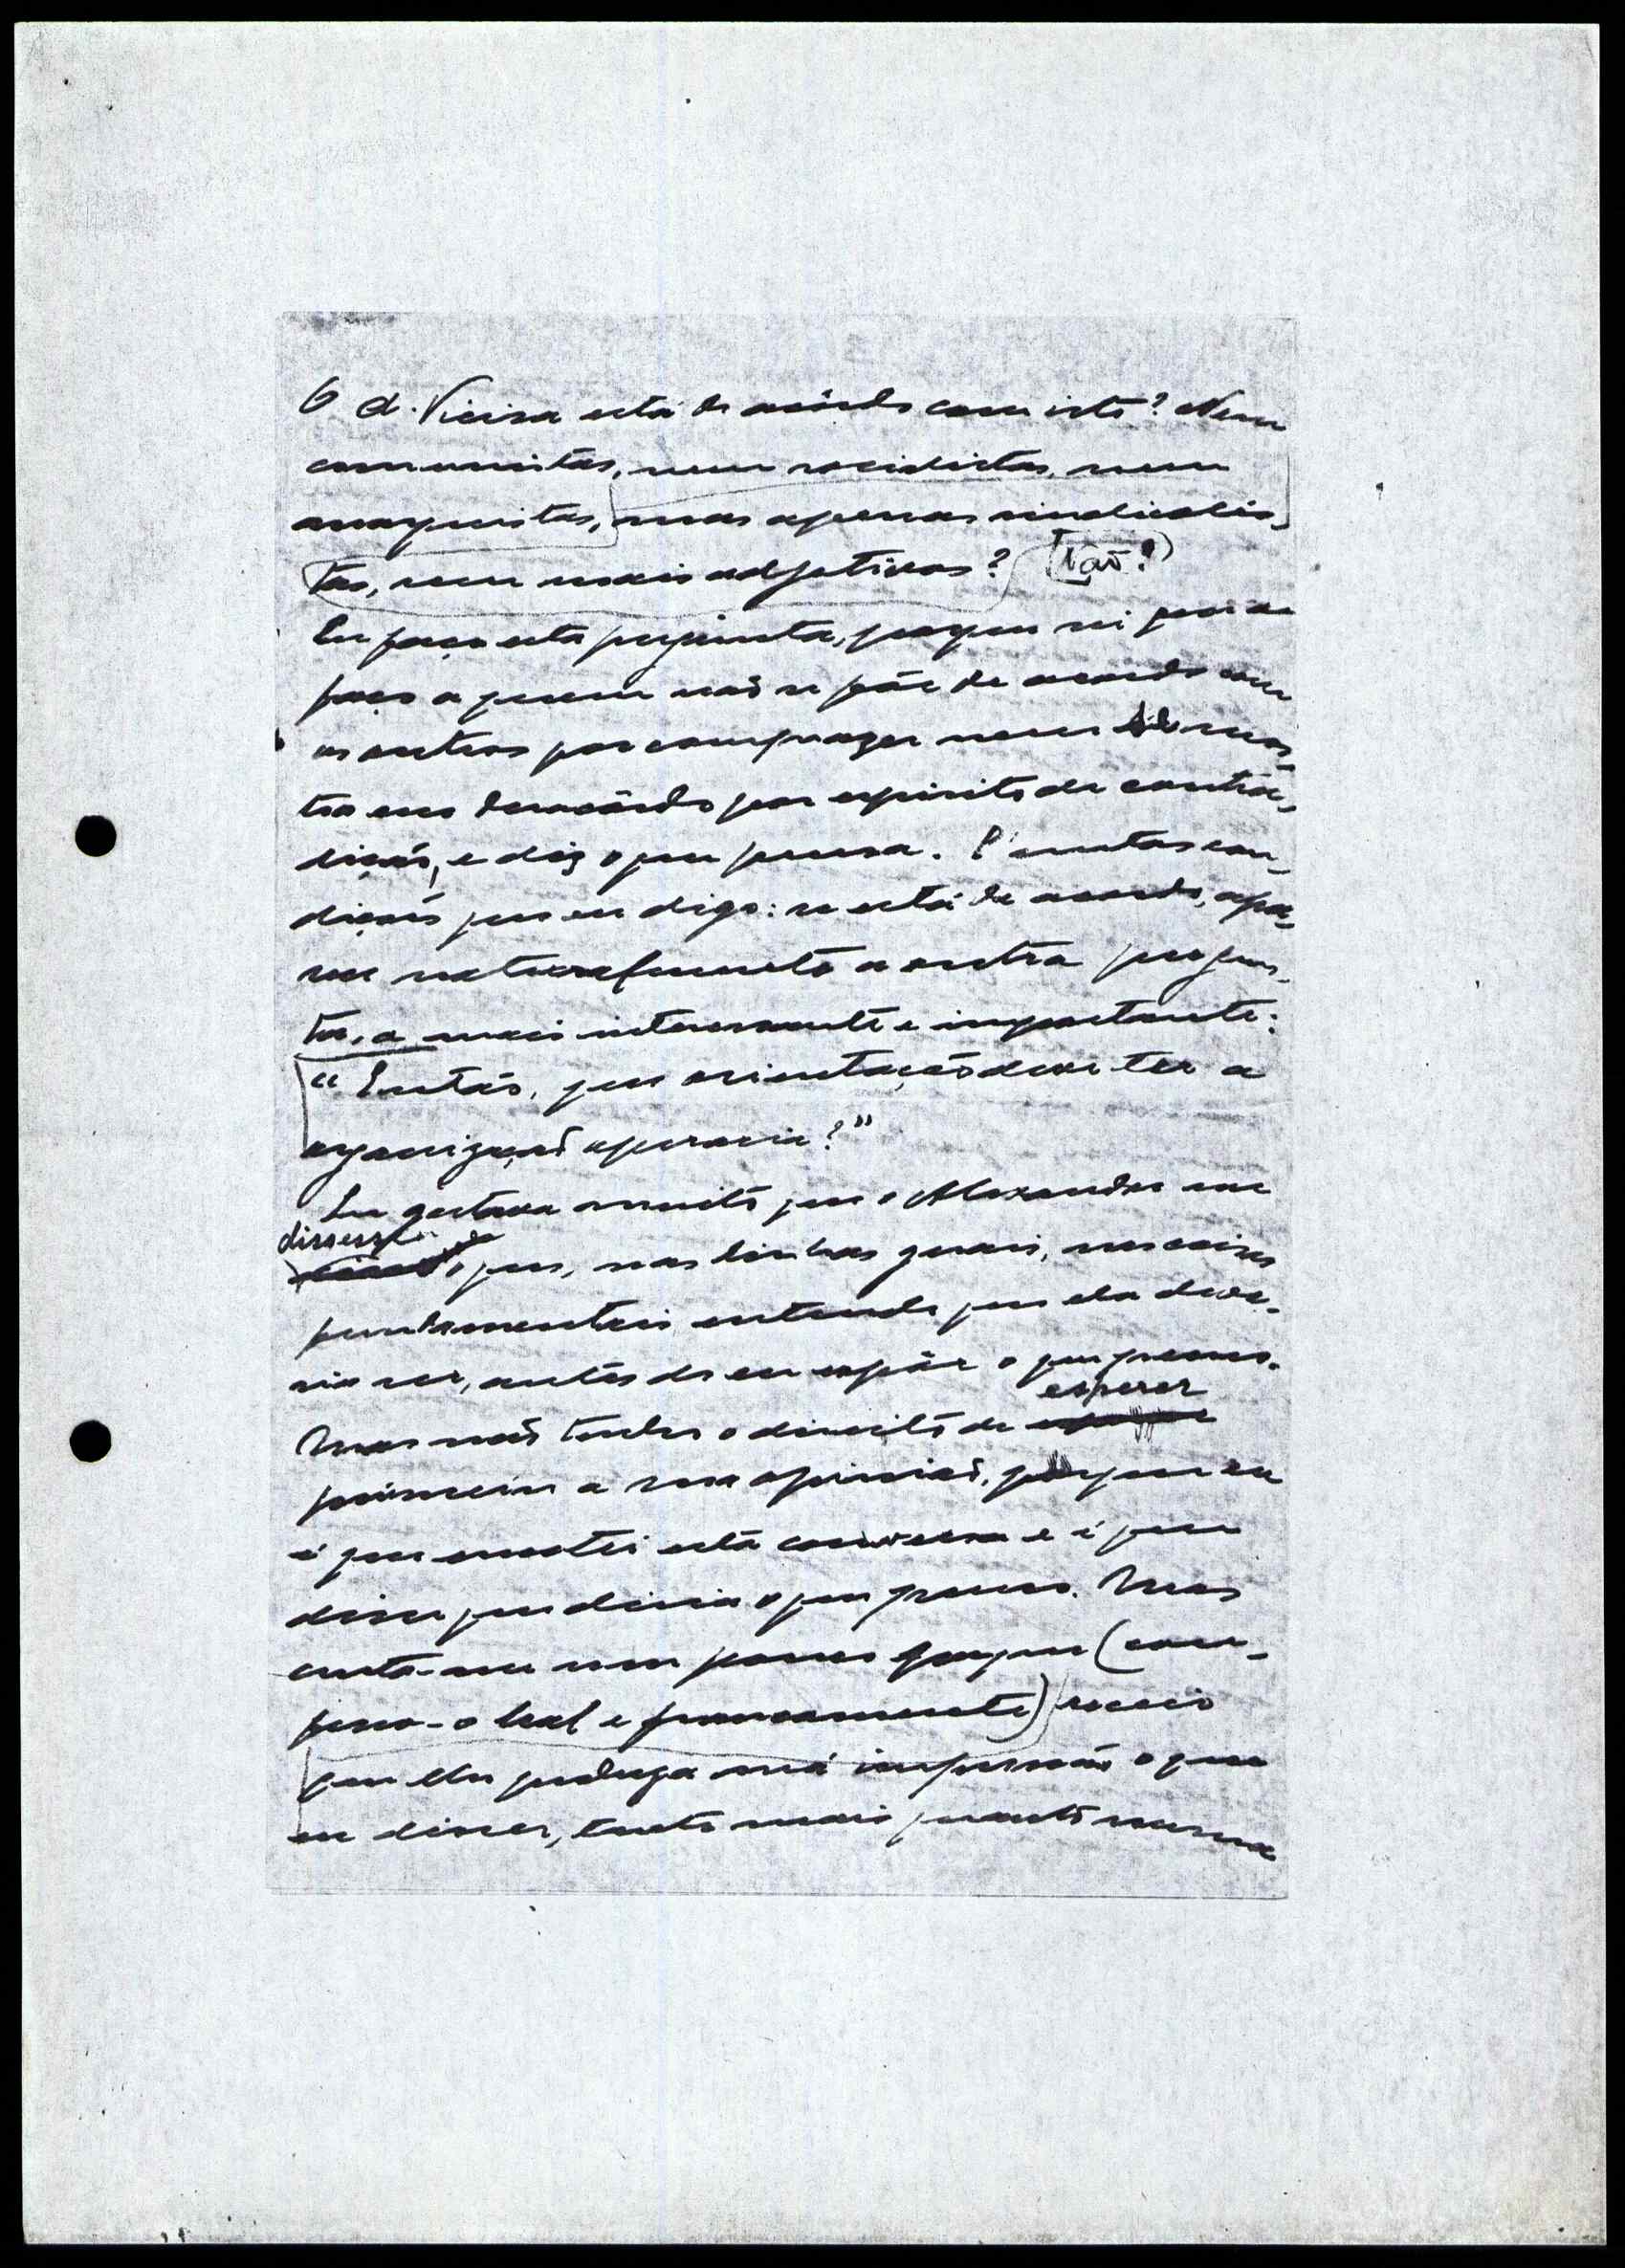 O A. Vieira está de acôrdo com isto? Nem
comunistas, nem socialistas, nem
anarquistas, mas apenas sindicalis-
tas, sem mais adjetivos? Não?
Eu faço esta pergunta, porque sei que a
faço a quem não se põe de acordo com
os outros por comprazer nem se mos-
tra em desacôrdo por espirito de contra-
dição, e diz o que pensa. E nestas con-
dições que eu digo: se está de acordo, apa-
rece naturalmente a outra pergun-
ta, a mais interessante e importante:
"Então, que orientação deve ter a
organização operaria?"
Eu gostava muito que o Alexandre me
dissesse o que, nas linhas gerais, nas coisas
fundamentais entende que ela deve-
ria ser, antes de eu expôr o que penso.
Mas não tenho o direito de esperar
primeiro a sua opinião, porque eu
é que encetei esta conversa e é que
disse que diria o que penso. Mas
custa-me um pouco porque (con-
fesso-o leal e francamente) receio
que lhe produza má impressão o que
eu disser, tanto mais quanto numa